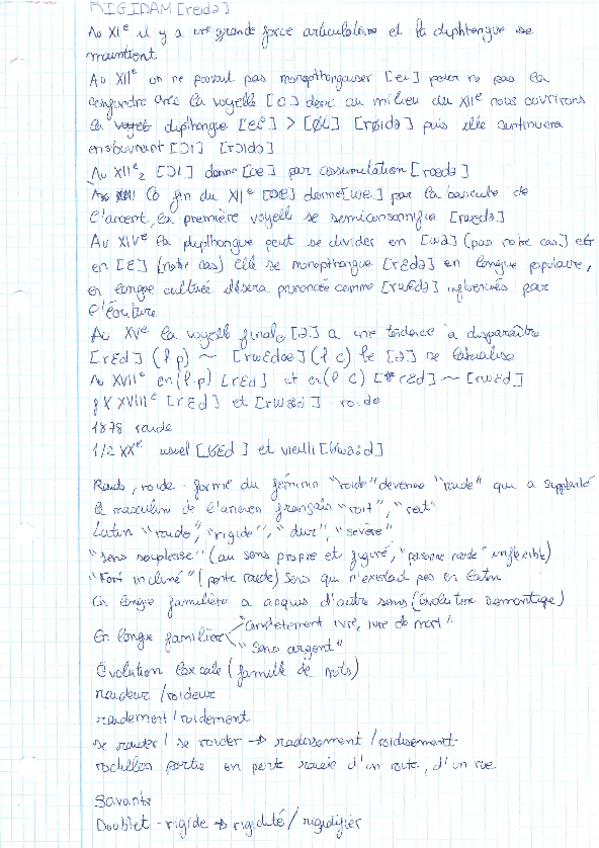 RIGIDAM [reidə]
Au XIe il y a une grande force articulatoire et la diphtongue se
maintient.
Au XIIe on ne pouvait pas monopthonguiser [ei] pour ne pas la
confondre avec la voyelle [e] donc au milieu du XIIe nous ouvrirons
la dipthongue [ei] > [øi] [røidə] puis elle continuera
en s'ouvrant [ɔi] [rɔidə]
Au XIIe2 [ɔi] donne [œ] par assimilation
la fin du XIIe donne [we] par la bascule de
l'accent, la première voyelle se semiconsonnifie [rwedə]
Au XIVe la dipthongue peut se divider en [wa] (pas notre cas) et
en [ɛ] (notre cas) elle se monopthongue [rɛdə] en langue populaire,
en langue cultivée elle sera prononcée comme [rwɛdə] influencés par
l'écriture
Au XVe la voyelle finale [ə] a une tendence a disparaître
[rɛd] (l p) ~ (l c) le [ə] se labialise
Au XVIIe en (l.p) [rɛd] et en (l c) ~ [rwɛd]
XVIIIe [rɛd] et roide
1878 raide
1/2 XXe usuel [ʁɛd] et vieilli
Raide, roide - formé du féminin "roide" devenue "raide" qui a supplanté
le masculin de l'ancien français "roit", "reit"
Latin "raide", "rigide", "dur", "sévère"
"sans souplesse" (au sens propre et figuré, "personne raide" inflexible)
"Fort incliné" (pente raide) Sens qui n'existait pas en latin
En langue familière a acquis d'autre sens (évolution semantique)
En langue familière "complètement ivre, ivre de mort".
"Sans argent"
Évolution lexicale (famille de mots)
raideur / roideur
raidement / roidement
se raider / se roider → raidissement / roidissement
raidillon partie en pente raide d'un route, d'un rue
Savants
Doublet - rigide → rigidité / rigidifier